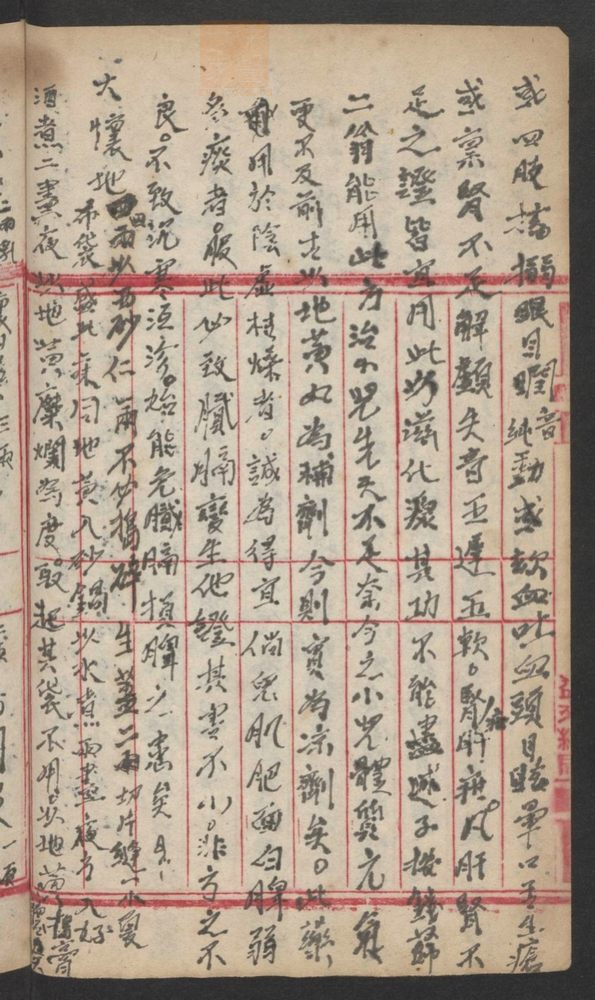 或四肢搐搦眼目瞤音純動或欬血吐血頭目眩暈口舌生瘡
或稟腎不足解顱失音五遲五軟。腎肝疳疾凡肝腎不
足之證皆宜用此以滋化源其功不能盡述予按錢薛
二翁能用此方治小兒先天不足奈今之小兒體質元氣
更不及前古以地黃丸為補劑今則實為凉劑矣。此藥
用於陰虛枯燥者。誠為得宜倘兒肌肥面白脾弱
多痰者。服此必致膩膈變生他證其害不小。非方之不
良。不致沉寒沍冷。始能免膩膈損脾之害矣
大懷地四兩以西砂仁兩不必搗碎生薑二兩切片縫一小夏
布袋盛此藥同地黃入砂鍋以水煮兩晝夜方入好
酒煮二晝夜以地黃糜爛為度。取起其袋不用。以地黃搗膏